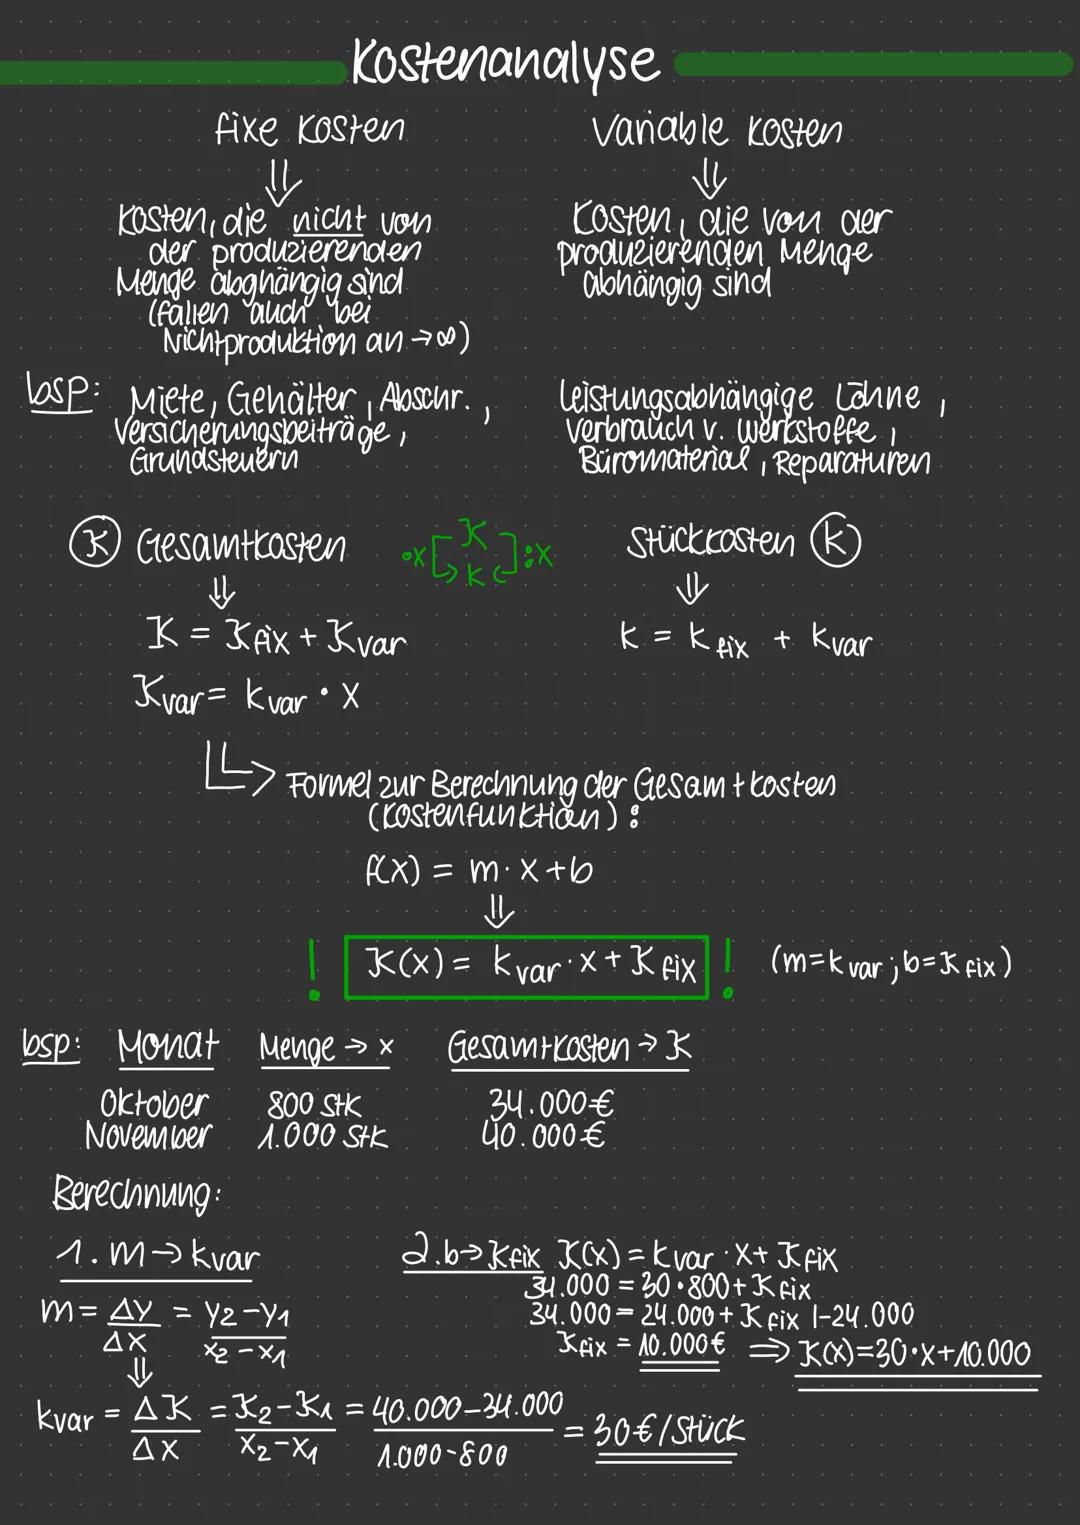 Kostenanalyse
fixe Kosten
⇓
Kosten, die nicht von
der produzierenden
Menge abghängig sind
(fallen auch bei
Nichtproduktion an → ∞)
Variable Kosten
⇓
Kosten, die von der
produzierenden Menge
abhängig sind
bsp: Miete, Gehälter, Abschr.,
Versicherungsbeiträge,
Grundsteuern
Leistungsabhängige Löhne,
Verbrauch v. Werkstoffe,
Büromaterial, Reparaturen
K Gesamtkosten
⇓
K = Kfix + Kvar
Kvar = kvar · x
K
·x :x
k
Stückkosten k
⇓
k = kfix + kvar
Formel zur Berechnung der Gesamtkosten
(Kostenfunktion):
f(x) = m · x + b
⇓
! K(x) = kvar · x + Kfix ! (m = kvar ; b = Kfix)
bsp: Monat Menge → x Gesamtkosten → K
Oktober 800 Stk 34.000€
November 1.000 Stk 40.000€
Berechnung:
1. m → kvar
m = Δy/Δx = y2 - y1/x2 - x1
⇓
kvar = ΔK/Δx = K2 - K1/x2 - x1 = 40.000 - 34.000/1.000 - 800 = 30€/Stück
2. b → Kfix K(x) = kvar · x + Kfix
34.000 = 30 · 800 + Kfix
34.000 = 24.000 + Kfix |-24.000
Kfix = 10.000€ ⇒ K(x) = 30 · x + 10.000